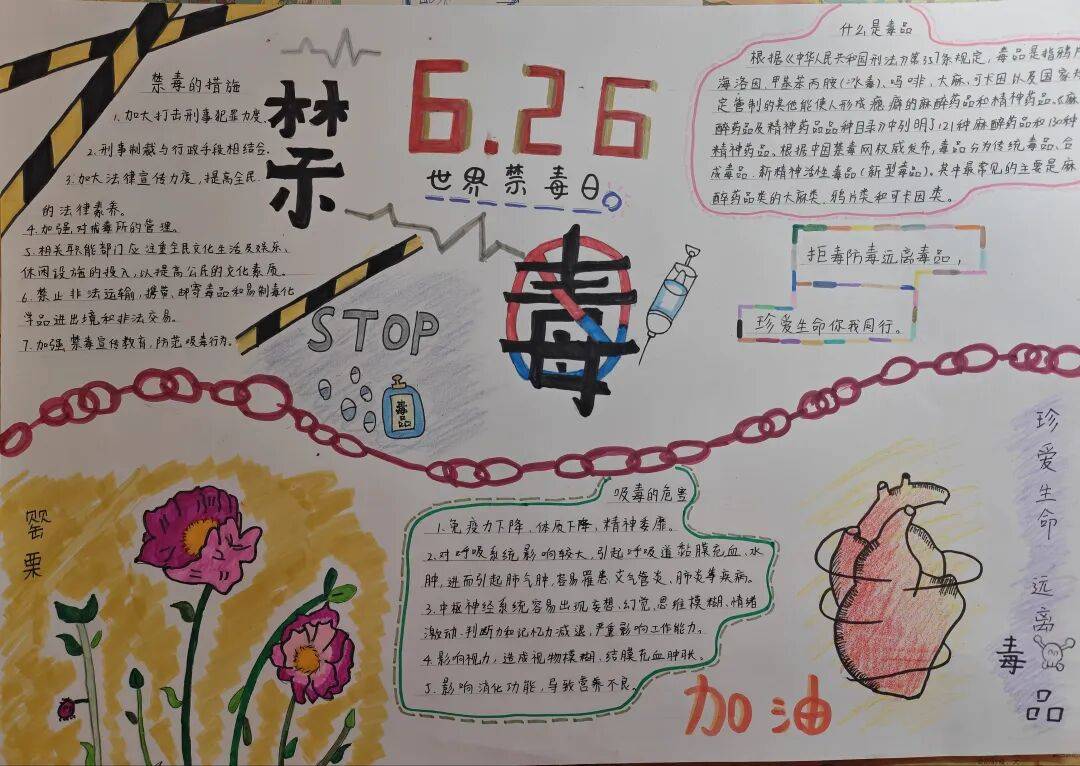 禁毒的措施
1.加大打击刑事犯罪力度.
2.刑事制裁与行政手段相结合.
3.加大法律宣传力度，提高全民
的法律素养。
4.加强对戒毒所的管理。
5.相关职能部门应注重全民文化生活及娱乐、
休闲设施的投入，以提高公民的文化素质。
6.禁止非法运输，携带、邮寄毒品和易制毒化
学品进出境和非法交易。
7.加强禁毒宣传教育，防范吸毒行为。
禁
毒
6.26
世界禁毒日。
STOP
毒品
什么是毒品
根据《中华人民共和国刑法》第357条规定，毒品是指鸦片
海洛因、甲基苯丙胺(冰毒)、吗啡、大麻、可卡因以及国家规
定管制的其他能使人形成瘾癖的麻醉药品和精神药品。《麻
醉药品及精神药品品种目录》中列明了121种麻醉药品和130种
精神药品。根据中国禁毒网权威发布，毒品分为传统毒品、合
成毒品、新精神活性毒品(新型毒品)。其中最常见的主要是麻
醉药品类的大麻类、鸦片类和可卡因类。
拒毒防毒远离毒品，
珍爱生命你我同行。
罂粟
吸毒的危害
1.免疫力下降、体质下降，精神萎靡。
2.对呼吸系统影响较大，引起呼吸道黏膜充血、水
肿，进而引起肺气肿，容易罹患支气管炎、肺炎等疾病。
3.中枢神经系统容易出现妄想、幻觉、思维模糊、情绪
激动、判断力和记忆力减退，严重影响工作能力。
4.影响视力，造成视物模糊、结膜充血肿胀。
5.影响消化功能，导致营养不良。
加油
珍爱生命远离毒品